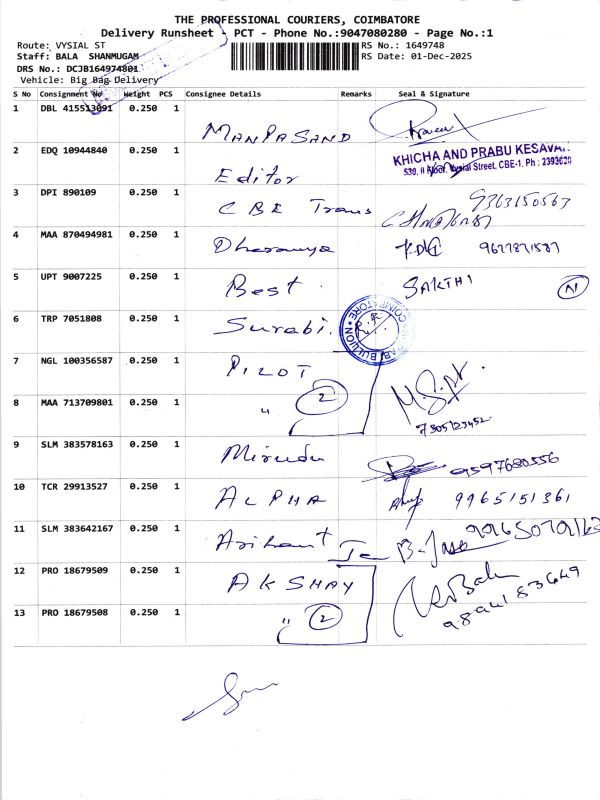 THE PROFESSIONAL COURIERS, COIMBATORE
Delivery Runsheet - PCT - Phone No.:9047080280 - Page No.:1
Route: VYSIAL ST
RS No.: 1649748
Staff: BALA SHANMUGAM
RS Date: 01-Dec-2025
DRS No.: DCJB164974801
Vehicle: Big Bag Delivery
S No Consignment No Weight PCS Consignee Details Remarks Seal & Signature
1 DBL 415513091 0.250 1 MANPASAND
2 EDQ 10944840 0.250 1 Editor
KHICHA AND PRABU KESAVA
530, II Floor, Vysial Street, CBE-1. Ph : 2393628
3 DPI 890109 0.250 1 CBE Trans 9363150563
4 MAA 870494981 0.250 1 Dharanya
5 UPT 9007225 0.250 1 Best SAKTHI N
6 TRP 7051808 0.250 1 Surabi.
7 NGL 100356587 0.250 1 PILOT
8 MAA 713709801 0.250 1 " 2
9 SLM 383578163 0.250 1 Mirudu 9597680556
10 TCR 29913527 0.250 1 ALPHA 9965151361
11 SLM 383642167 0.250 1 Arihant
12 PRO 18679509 0.250 1 AKSHAY
13 PRO 18679508 0.250 1 " 2